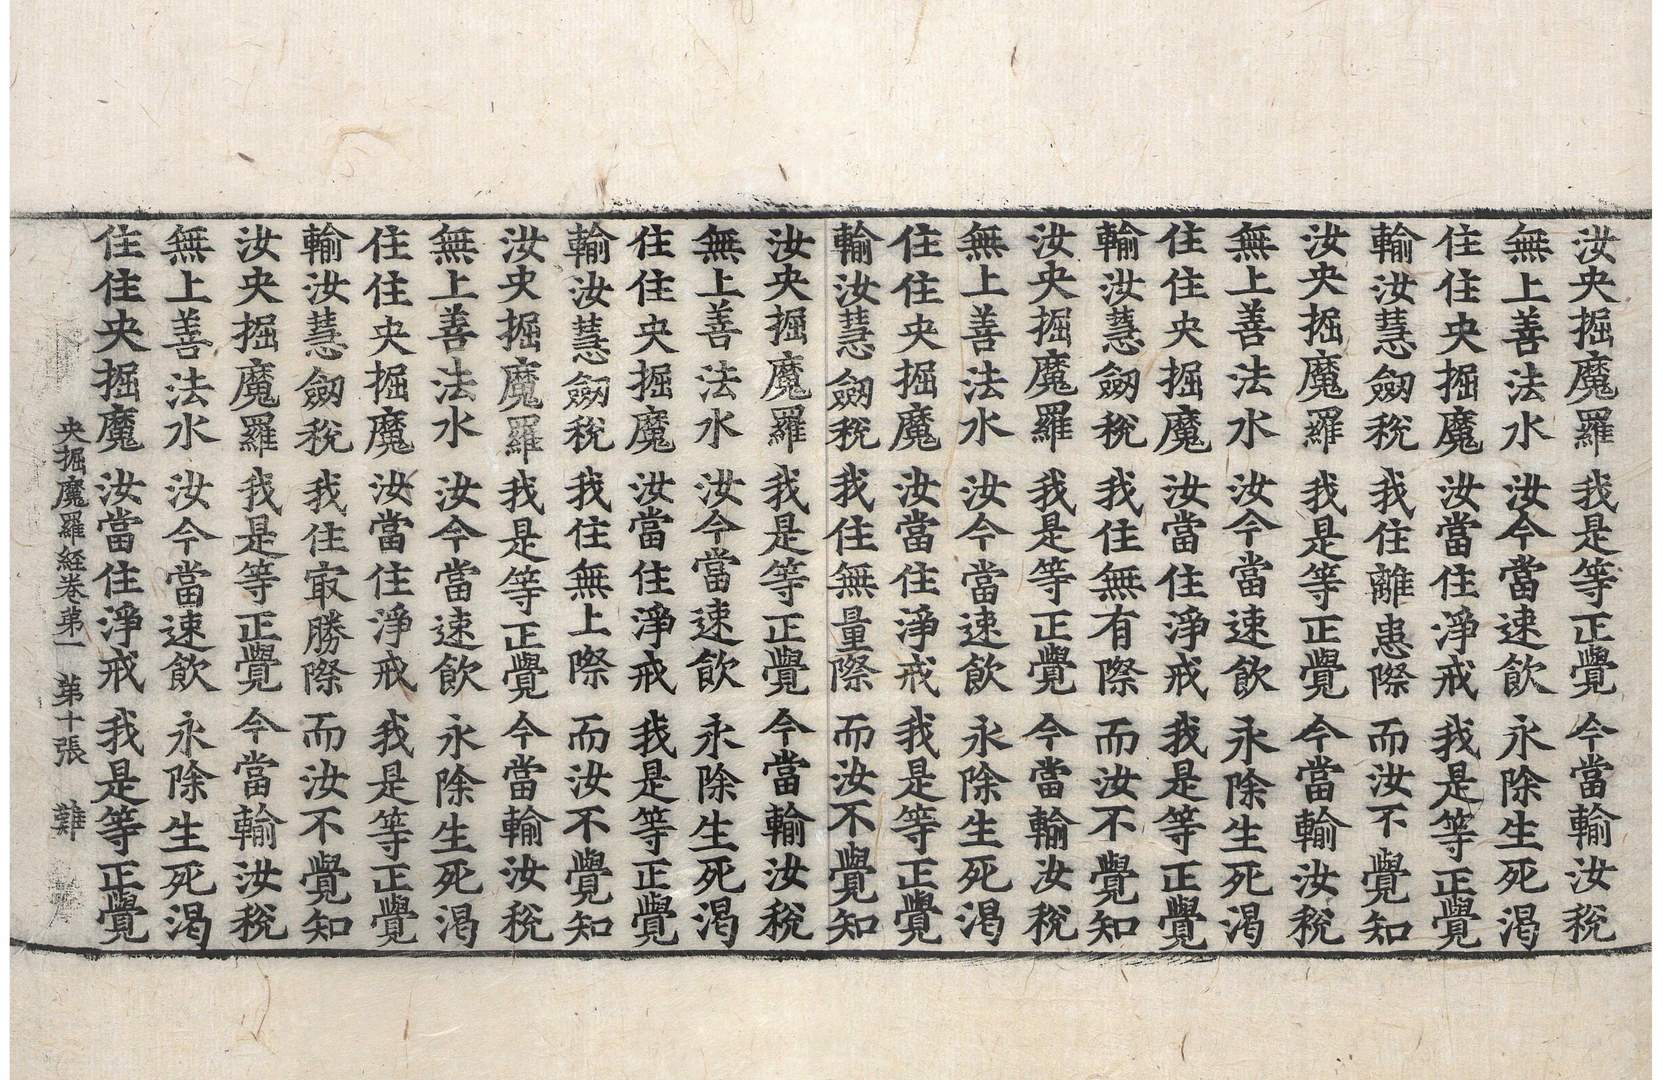 汝央掘魔羅 我是等正覺 今當輸汝稅
無上善法水 汝今當速飲 永除生死渴
住住央掘魔 汝當住淨戒 我是等正覺
輸汝慧劒稅 我住離患際 而汝不覺知
汝央掘魔羅 我是等正覺 今當輸汝稅
無上善法水 汝今當速飲 永除生死渴
住住央掘魔 汝當住淨戒 我是等正覺
輸汝慧劒稅 我住無有際 而汝不覺知
汝央掘魔羅 我是等正覺 今當輸汝稅
無上善法水 汝今當速飲 永除生死渴
住住央掘魔 汝當住淨戒 我是等正覺
輸汝慧劒稅 我住無量際 而汝不覺知
汝央掘魔羅 我是等正覺 今當輸汝稅
無上善法水 汝今當速飲 永除生死渴
住住央掘魔 汝當住淨戒 我是等正覺
輸汝慧劒稅 我住無上際 而汝不覺知
汝央掘魔羅 我是等正覺 今當輸汝稅
無上善法水 汝今當速飲 永除生死渴
住住央掘魔 汝當住淨戒 我是等正覺
輸汝慧劒稅 我住㝡勝際 而汝不覺知
汝央掘魔羅 我是等正覺 今當輸汝稅
無上善法水 汝今當速飲 永除生死渴
住住央掘魔 汝當住淨戒 我是等正覺
央掘魔羅経卷第一 第十張 難